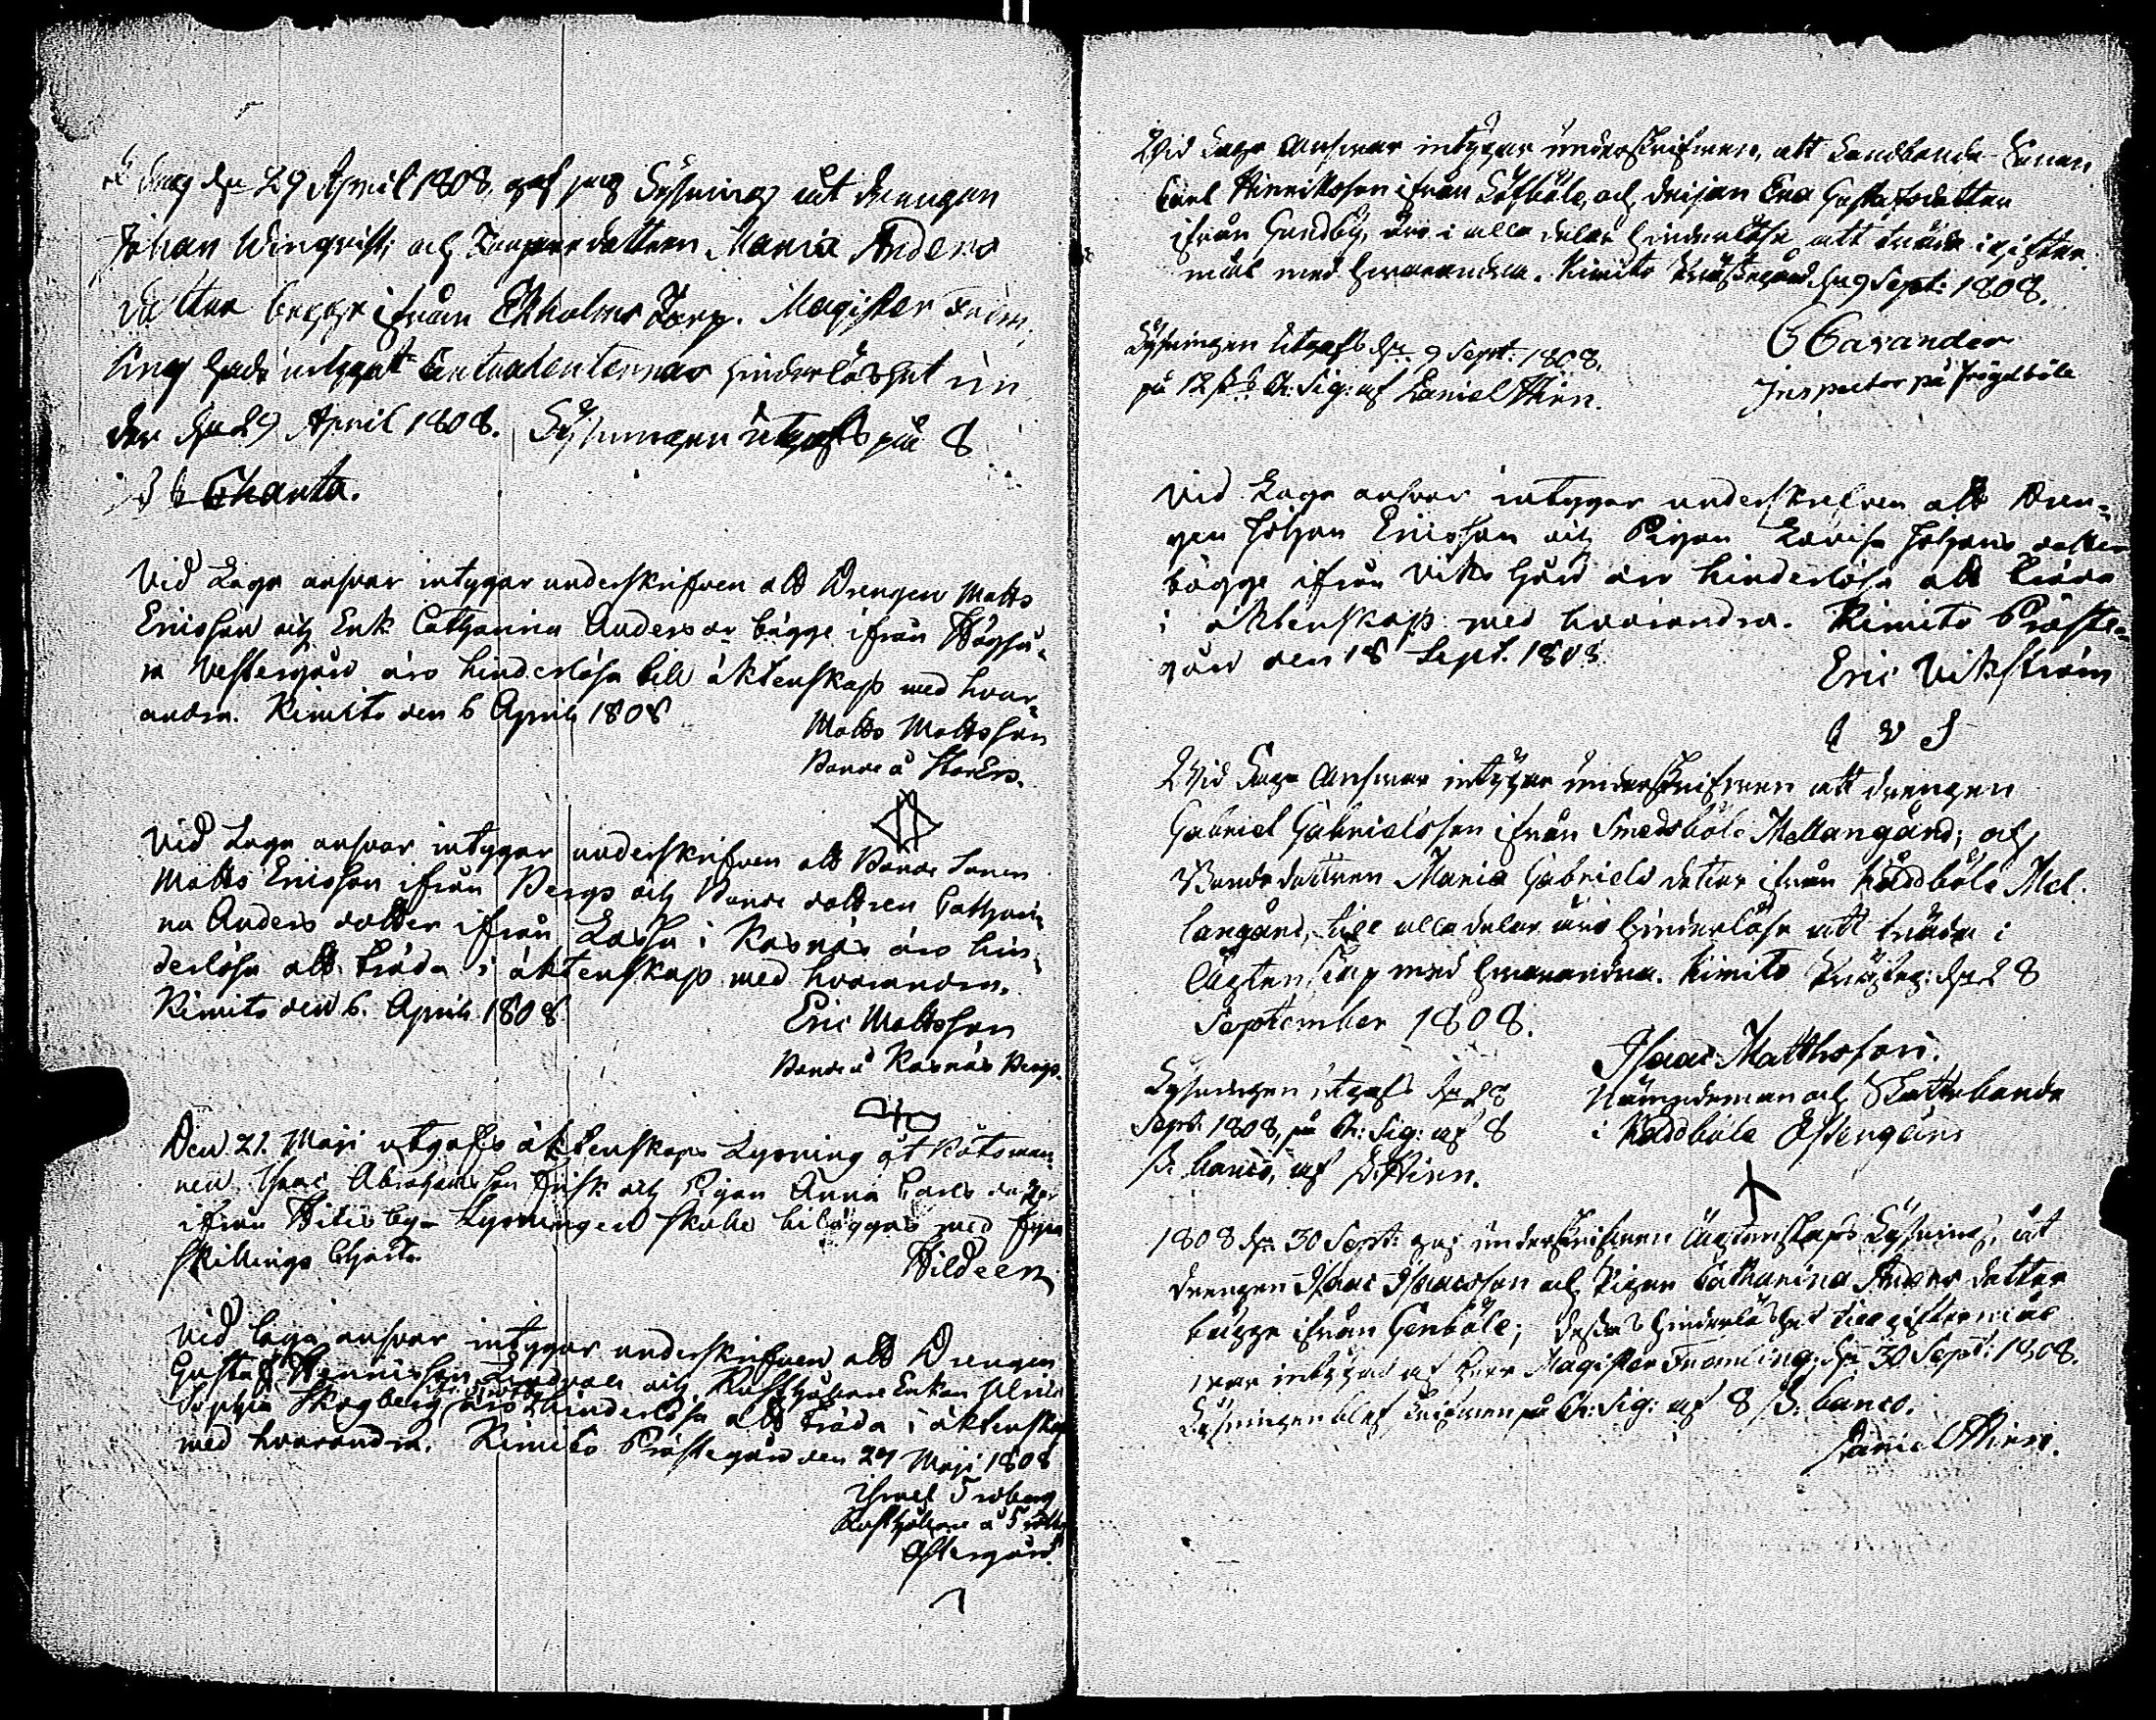 dag den 29 April 1808, gaf jag Lysning åt Drengen
Johan Winqvist, och Torparedottren Maria Anders
dotter begge ifrån Ekholms Torp. Magister Fröm
ling hade intygat Contrahenternas hinderlöshet un
der den 29 April 1808. Lysningen utgafs på 8
ß Charta.
Vid Laga ansvar intygar underskrifven att Drengen Matts
Ericsson och Enk. Catharina Andersdr bägge ifrån Högså-
ra Vestergård äro hinderlösa till äktenskap med hvar-
andra. Kimito den 6 April 1808
Matts Mattsson
Bonde å
Vid Laga ansvar intygar underskrifven att Bonde Sonen
Matts Ericsson ifrån Bergs och Bonde dottren Cathari-
na Anders dotter ifrån Lassa i Rosnäs äro hin-
derlösa att träda i äktenskap med hvarandra.
Kimito den 6. April 1808
Eric Mattsson
Bonde å Rosnäs Bergs.
Den 21. Maji utgafs äktenskaps Lysning åt Båtsman-
nen Isaac Abrahamsson Frisk och Pigan Anna Carls dotter
ifrån Hitis by. Lysningen skulle biläggas med fyra
skillings Charta
Hildeen
Vid laga ansvar intygar underskrifven att Drengen
Gustaf Henricsson Lindroos och Rusthållare Enkan Ulrica
Sophia Skogberg äro hinderlösa att träda i äktenskap
med hvarandra. Kimito Prästegård den 27 Maji 1808
Israel
Rusthållare å
Östergård
Vid Laga Answar intygar underskrifwen, att Landbonde Sonen
Carl Hinriksson ifrån Löfböle, och Pigan Eva Gustafsdotter
ifrån Gundby, äro i alla delar hinderlösa att träda i gifter-
mål med hwarandra. Kimito Prästegård den 9 Sept: 1808.
C Cavander
Inspector på Fröjdböle
Lysningen utgafs den 9 Sept: 1808.
på 12 ß Ch: Sig: af Daniel Hirn.
Vid Laga ansvar intygar underskrefven att Dren-
gen Johan Ericsson och Pigan Lovisa Johans dotter
bägge ifrån Viks Gård äro hinderlösa att träda
i äktenskap med hvarandra. Kimito Präste-
gård den 18 Sept. 1808
Eric Vikström
E W S
Wid Laga Answar intygar underskrifwen att drengen
Gabriel Gabrielsson ifrån Smedsböle Mellangård, och
Bondedottren Maria Gabriels dotter ifrån Kåddböle Mel-
langård, till alla delar äro hinderlösa att träda i
Ägtenskap med hwarandra. Kimito Prästeg: den 28
September 1808.
Isaac Matthsson.
Nämndeman och Skattebonde
i Kåddböle Östergård
Lysningen utgafs den 28
Sept: 1808, på Ch: Sig: af 8
ß. banco, af D. Hirn.
1808 den 30 Sept: gaf underskrifwen Ägtenskaps Lysning, åt
drengen Isaac Isaacsson och Pigan Catharina Anders dotter
begge ifrån Genböle; deras hinderlöshet till giftermål
war intygad af Herr Magister Fromling; den 30 Sept: 1808.
Lysningen blef skrifwen på Ch: Sig: af 8 ß. banco.
Daniel Hirn.